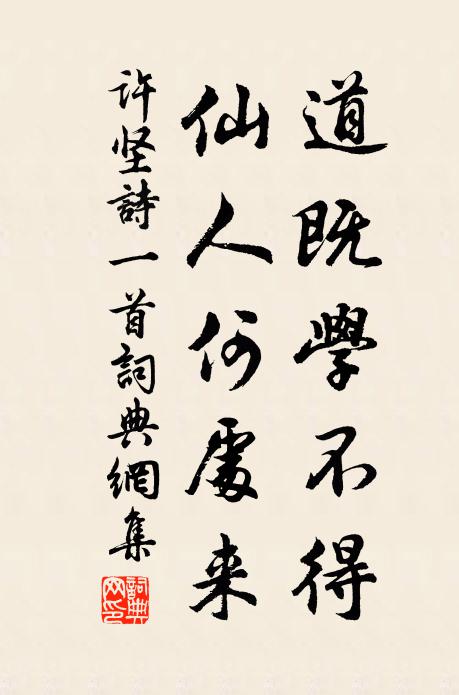 道既學不得
仙人何處来
许坚詩一首詞典網集
詞典网印